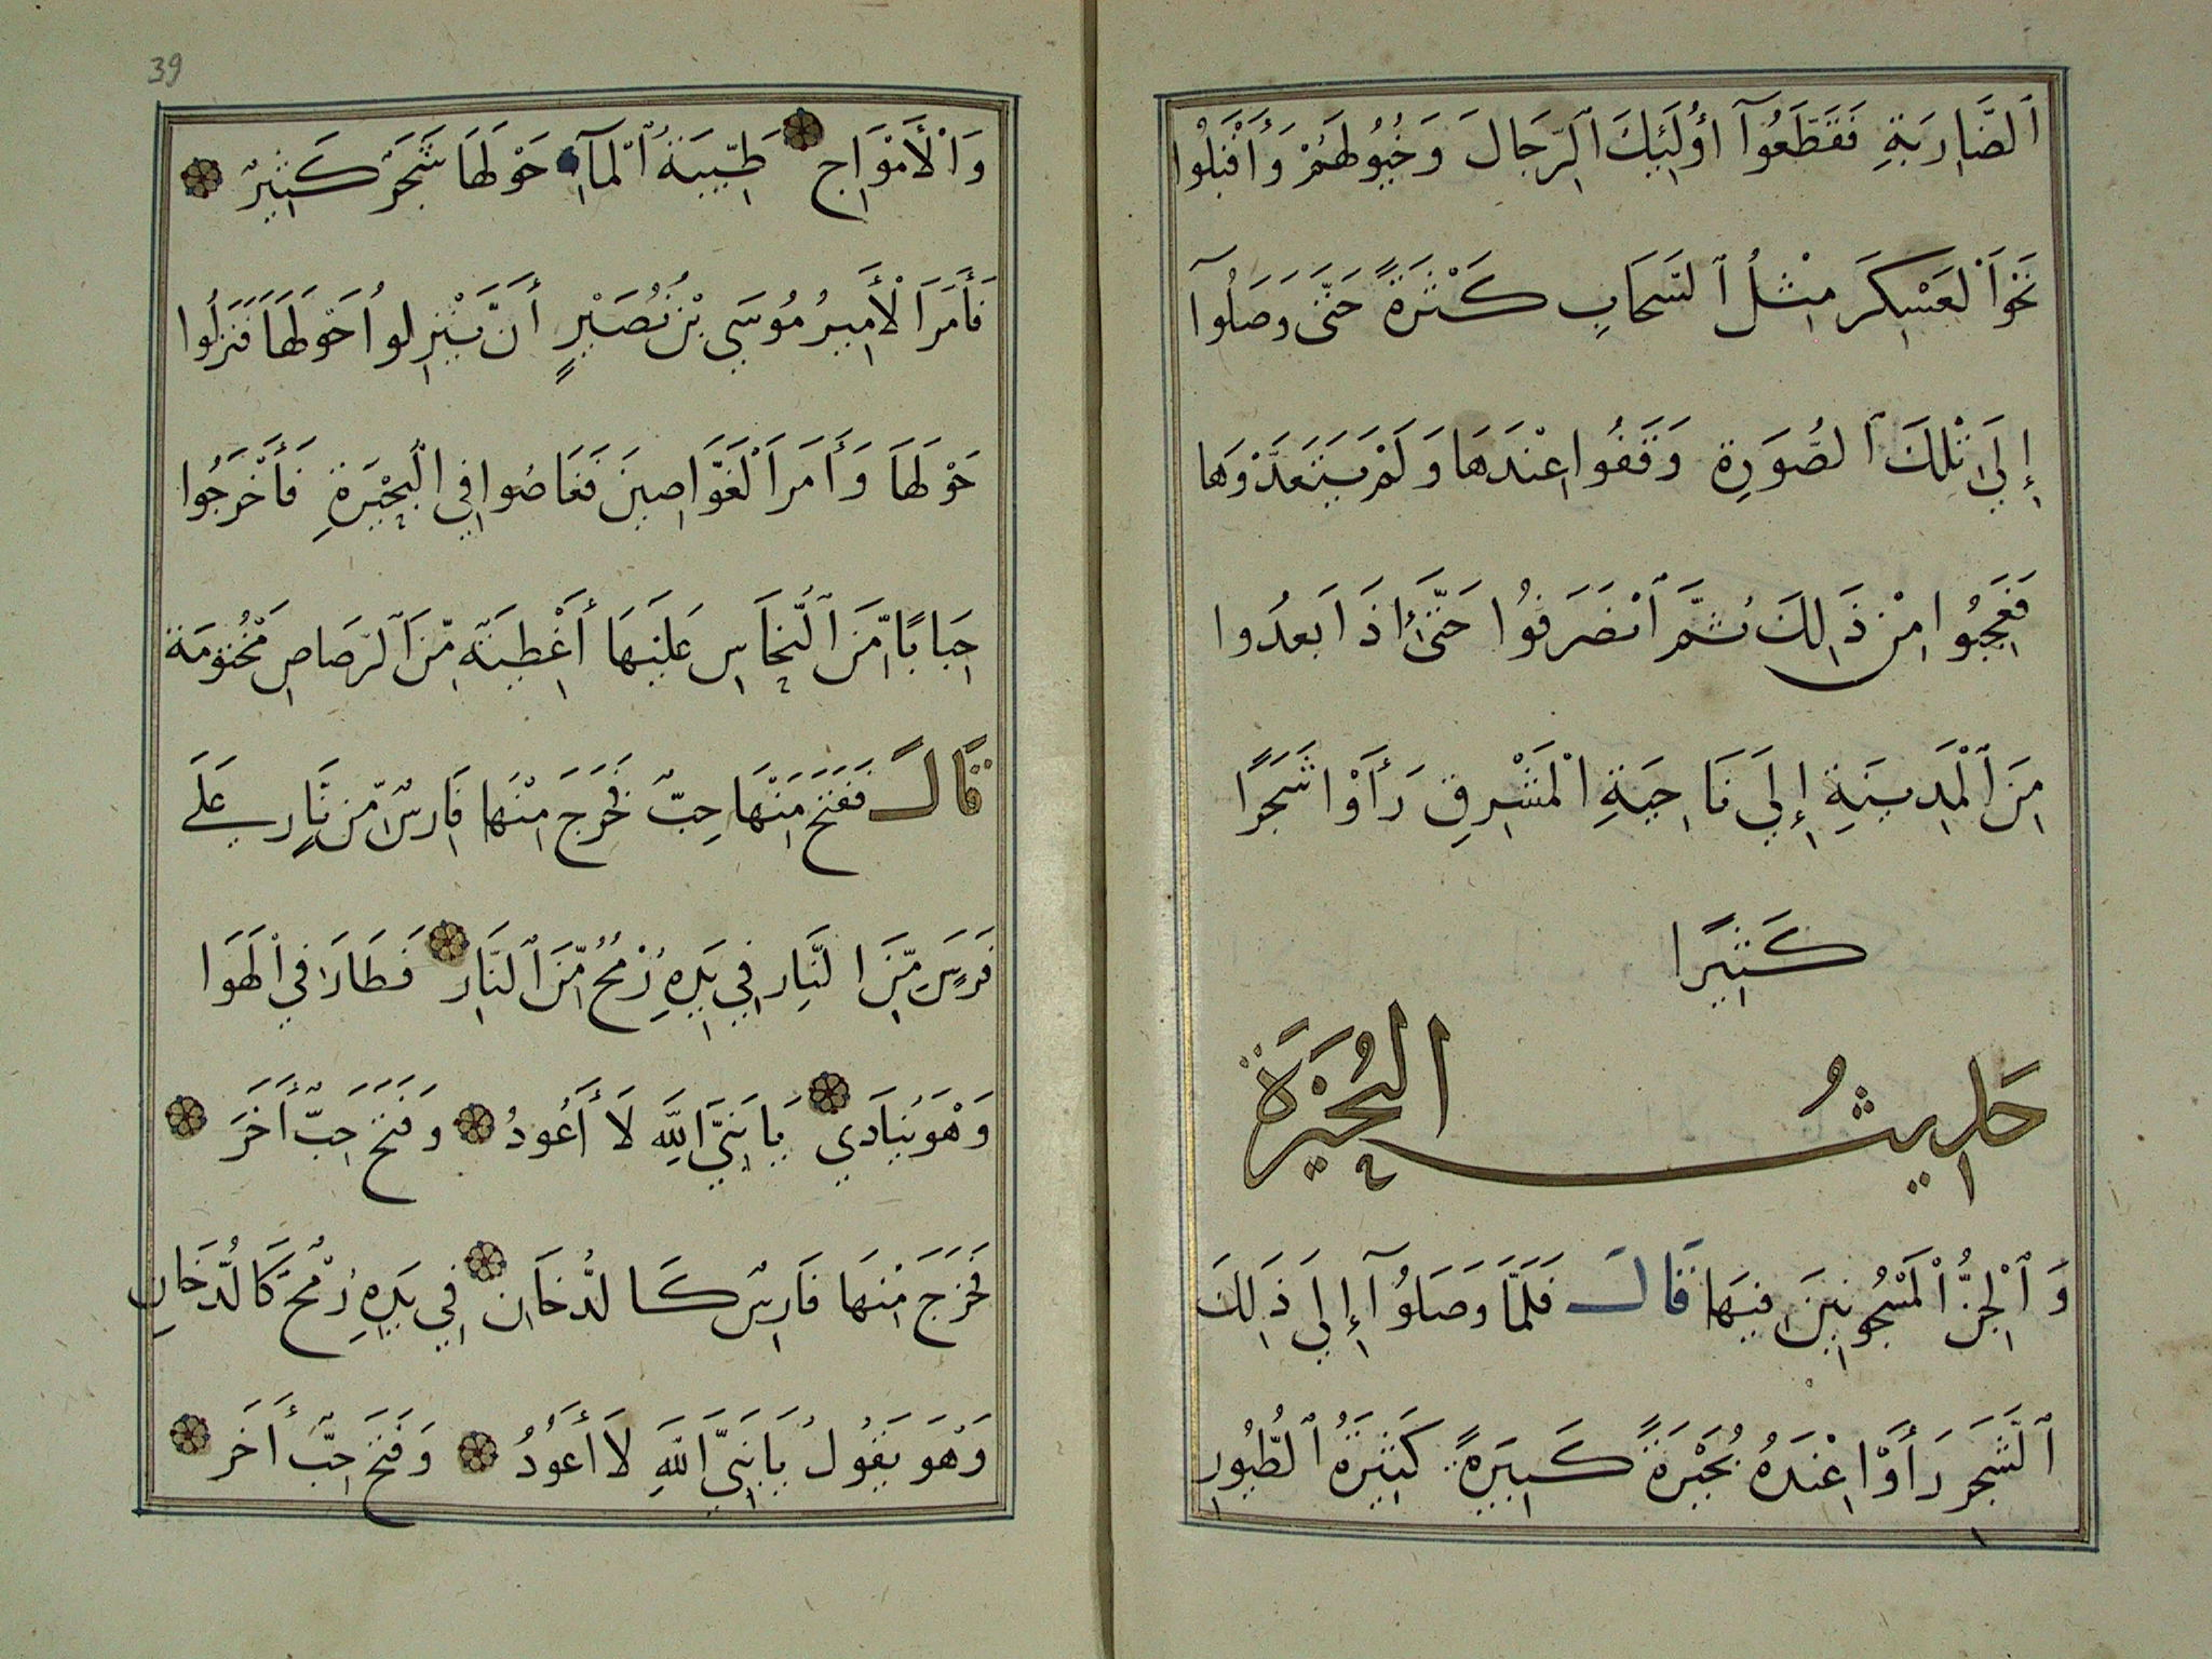 ٱلضَّارِيَةِ فَقَطَعُوٓا أُولَٰئِكَ ٱلرِّجَالَ وَخُيُولَهُمْ وَأَقْبَلُوا
نَحْوَ ٱلْعَسْكَرِ مِثْلُ ٱلسَّحَابِ كَثْرَةً حَتَّى وَصَلُوٓا
إِلَى تِلْكَ ٱلصُّورَةِ وَقَفُوا عِنْدَهَا وَلَمْ يَتَعَدَّوْهَا
فَعَجِبُوا مِنْ ذَٰلِكَ ثُمَّ ٱنْصَرَفُوا حَتَّى إِذَا بَعُدُوا
مِنَ ٱلْمَدِينَةِ إِلَى نَاحِيَةِ ٱلْمَشْرِقِ رَأَوْا شَجَرًا
كَثِيرًا
حَدِيثُ البُحَيْرَةِ
وَٱلْجِنِّ ٱلْمَسْجُونِينَ فِيهَا قَالَ فَلَمَّا وَصَلُوٓا إِلَى ذَٰلِكَ
ٱلشَّجَرِ رَأَوْا عِنْدَهُ بُحَيْرَةً كَبِيرَةً كَثِيرَةُ ٱلطُّيُورِ
39
وَٱلْأَمْوَاجِ طَيِّبَةُ ٱلْمَآءِ حَوْلَهَا شَجَرٌ كَثِيرٌ
فَأَمَرَ ٱلْأَمِيرُ مُوسَى بْنُ نُصَيْرٍ أَنْ يَّنْزِلُوا حَوْلَهَا فَنَزَلُوا
حَوْلَهَا وَأَمَرَ ٱلْغَوَّاصِينَ فَغَاصُوا فِي ٱلْبُحَيْرَةِ فَأَخْرَجُوا
حِبَابًا مِّنَ ٱلنُّحَاسِ عَلَيْهَا أَغْطِيَةٌ مِّنَ ٱلرَّصَاصِ مَخْتُومَة
قَالَ فَفَتَحَ مِنْهَا حِبٌّ فَخَرَجَ مِنْهَا فَارِسٌ مِّنْ نَّارٍ عَلَى
فَرَسٍ مِّنَ النَّارِ فِي يَدِهِ رُمْحٌ مِّنَ ٱلنَّارِ فَطَارَ فِي ٱلْهَوَا
وَهْوَ يُنَادِي يَا نَبِيَّ ٱللَّهِ لَا أَعُودُ وَفَتَحَ حِبٌّ أَخَرَ
فَخَرَجَ مِنْهَا فَارِسٌ كَالدُّخَانِ فِي يَدِهِ رُمْحٌ كَالدُّخَانِ
وَهُوَ يَقُولُ يَا نَبِيَّ ٱللَّهِ لَا أَعُودُ وَفَتَحَ حِبٌّ أَخَرَ